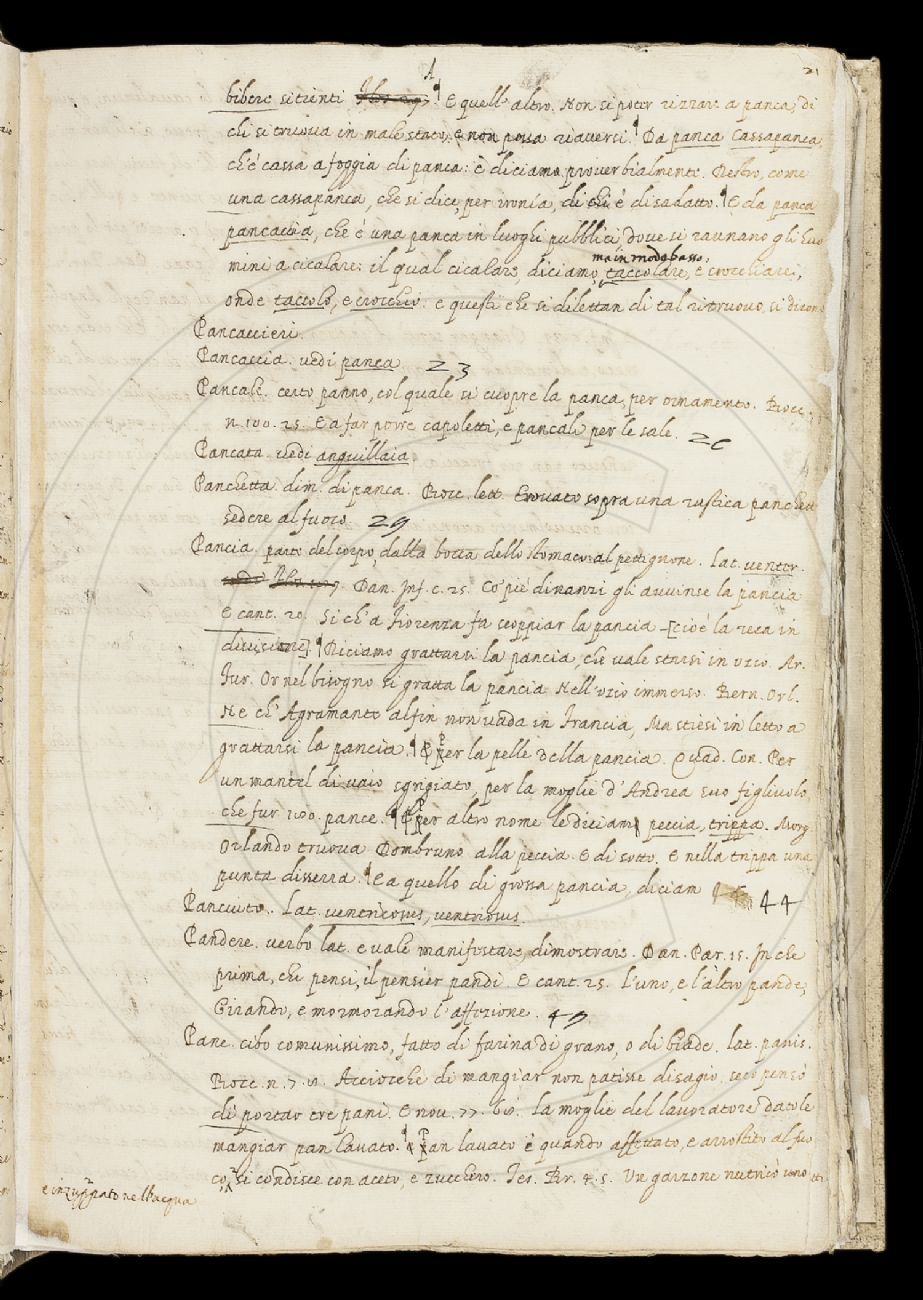 21
A
bibere sitienti. E quell'altro. Non si poter rizzare a panca, di
chi si truova in male stato, e non possa riaversi. Da panca Cassapanca,
ch'è cassa a foggia di panca: e diciamo proverbialmente. Nesbo, come
una cassapanca, che si dice, per ironía, di chi è disadatto. E da panca
pancaccia, che è una panca in luoghi pubblici, dove si raunano gli huo
mini a cicalare: il qual cicalare, diciamo, ma in modo basso, taccolare, e crocchiare,
onde taccolo, e crocchio. e questi che si dilettan di tal ritruovo, si dicono
Pancaccieri.
Pancaccia. vedi panca 23
Pancale. certo panno, col quale si cuopre la panca per ornamento. Bocc.
n. 100. 25. E a far porre capoletti, e pancali per le sale. 26
Pancata. vedi anguillaia.
Panchetta. dim. di panca. Bocc. lett. trovato sopra una rustica panchett
sedere al fuoco. 29
Pancia. parte del corpo, dalla bocca dello stomaco al pettignone. Lat. venter.
Dan. Inf. c. 25. Co' piè dinanzi gli avvinse la pancia
E cant. 20. Sì ch'a Fiorenza fa scoppiar la pancia [cioè la reca in
divisione] Diciamo grattarsi la pancia, che vale starsi in ozio. Ar.
Fur. Or nel bisogno si gratta la pancia Nell'ozio immerso. Bern. Orl.
Ne ch'Agramante alfin non vada in Francia, Ma stiesi in letto a
grattarsi la pancia. Per la pelle della pancia. Quad. Con. Per
un mantel di vaio sgrigiato, per la moglie d'Andrea suo figliuolo
che fur 100. pance. Per altro nome le diciam peccia, trippa. Morg.
Orlando truova Dombruno alla peccia E di sotto. E nella trippa una
punta disserra. E a quello di grossa pancia, diciam 44
Panciuto. Lat. ventricosus, ventriosus.
Pandere. verbo lat. e vale manifestare, dimostrare. Dan. Par. 15. In che
prima, che pensi, il pensier pandi. E cant. 25. L'uno, e l'altro pande,
Girando, e mormorando l'affezione. 49
Pane. cibo comunissimo, fatto di farina di grano, o di biade. Lat. panis.
Bocc. n. 7. Acciocché di mangiar non patisse disagio, seco pensò
di portar tre pani. E nov. 77. 60. La moglie del lavoratore datole
mangiar pan lavato. Pan lavato è quando affettato, e arrostito al fuo
co, si condisce con aceto, e zucchero. Tes. Br. 4. 5. Un garzone nutricò uno
e inzuppato nell'acqua